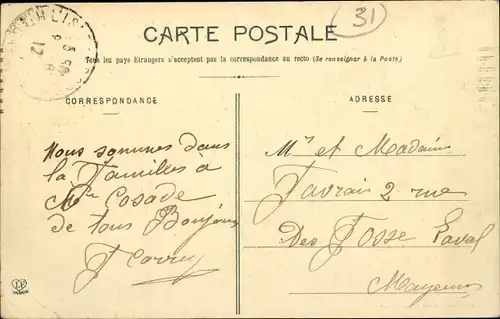 31
CARTE POSTALE
Tous les pays Etrangers n'acceptent pas la correspondance au recto (Se renseigner à la Poste)
CORRESPONDANCE
ADRESSE
Nous sommes dans
la Familles à
Mr Cosade
de tous Bonjour
Mr et Madame
Favrais 2 rue
Des Fosse Laval
Mayenne